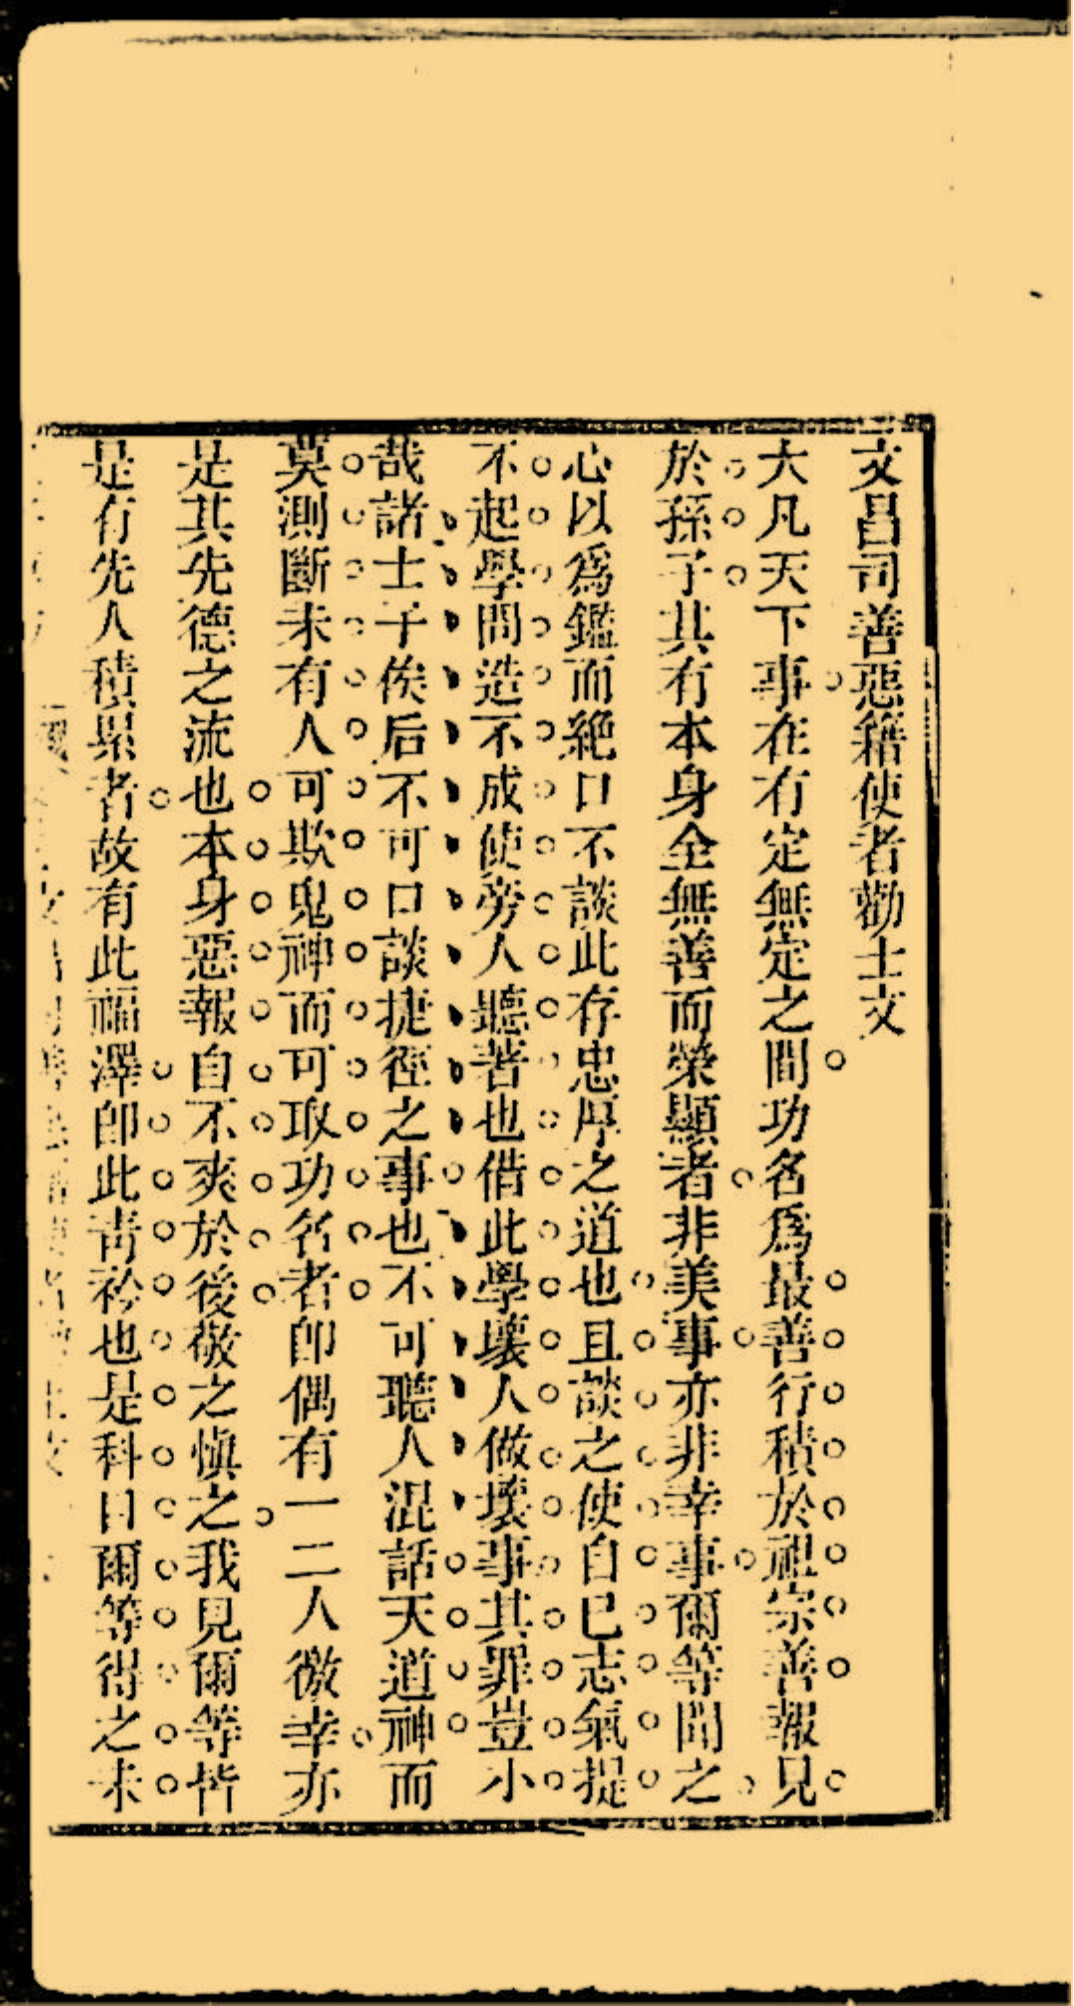 文昌司善惡籍使者勸士文
大凡天下事在有定無定之間功名爲最善行積於祖宗善報見
於孫子其有本身全無善而榮顯者非美事亦非幸事爾等聞之
心以爲鑑而絕口不談此存忠厚之道也且談之使自已志氣提
不起學問造不成使旁人聽著也借此學壞人做壞事其罪豈小
哉諸士子俟后不可口談捷徑之事也不可聽人混話天道神而
莫測斷未有人可欺鬼神而可取功名者卽偶有一二人徼幸亦
是其先德之流也本身惡報自不爽於後敬之愼之我見爾等皆
是有先人積累者故有此福澤卽此靑衿也是科目爾等得之未